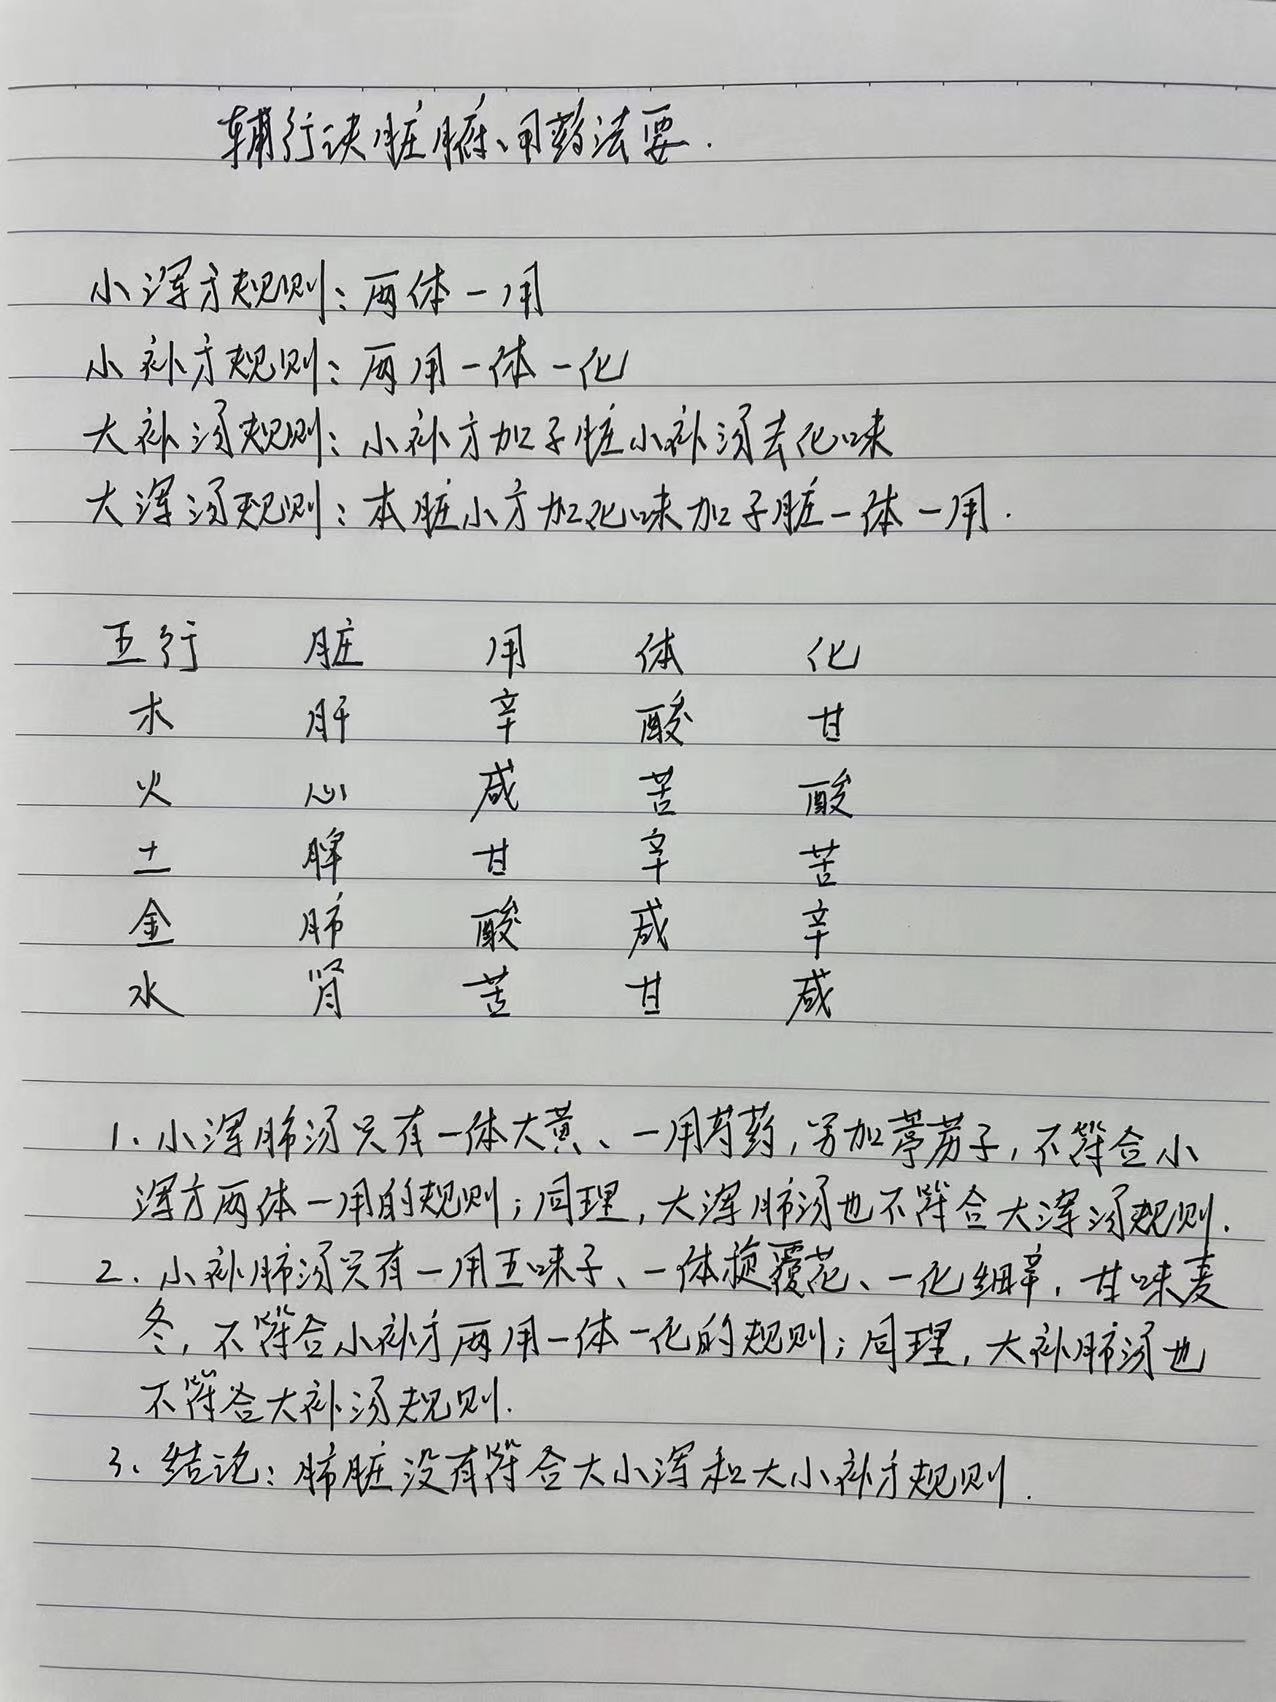 辅行诀脏腑用药法要.
小泻方规则：两体一用
小补方规则：两用一体一化
大补汤规则：小补方加子脏小补汤去化味
大泻汤规则：本脏小方加化味加子脏一体一用.
五行 脏 用 体 化
木 肝 辛 酸 甘
火 心 咸 苦 酸
土 脾 甘 辛 苦
金 肺 酸 咸 辛
水 肾 苦 甘 咸
1、小泻肺汤只有一体大黄、一用芍药，另加葶苈子，不符合小
泻方两体一用的规则；同理，大泻肺汤也不符合大泻汤规则.
2、小补肺汤只有一用五味子、一体旋覆花、一化细辛，甘味麦
冬，不符合小补方两用一体一化的规则；同理，大补肺汤也
不符合大补汤规则.
3、结论：肺脏没有符合大小泻和大小补方规则.